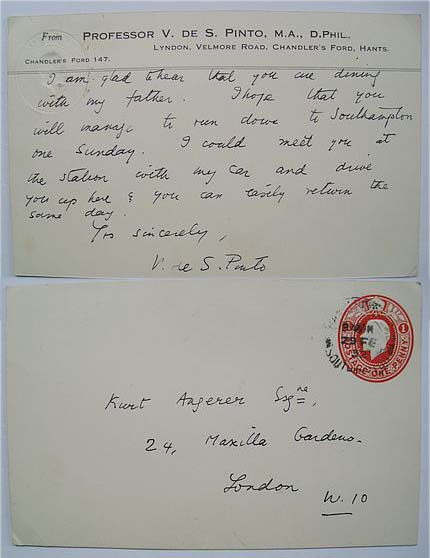 From PROFESSOR V. DE S. PINTO, M.A., D.PHIL.
LYNDON, VELMORE ROAD, CHANDLER'S FORD, HANTS.
CHANDLER'S FORD 147.
I am glad to hear that you are dining
with my father. I hope that you
will manage to run down to Southampton
one Sunday. I could meet you at
the station with my car and drive
you up here & you can easily return the
same day.
Yrs sincerely,
V. de S. Pinto
POSTAGE ONE PENNY
1
FE
Kurt Angerer Esqre,
24, Maxilla Gardens.
London W. 10